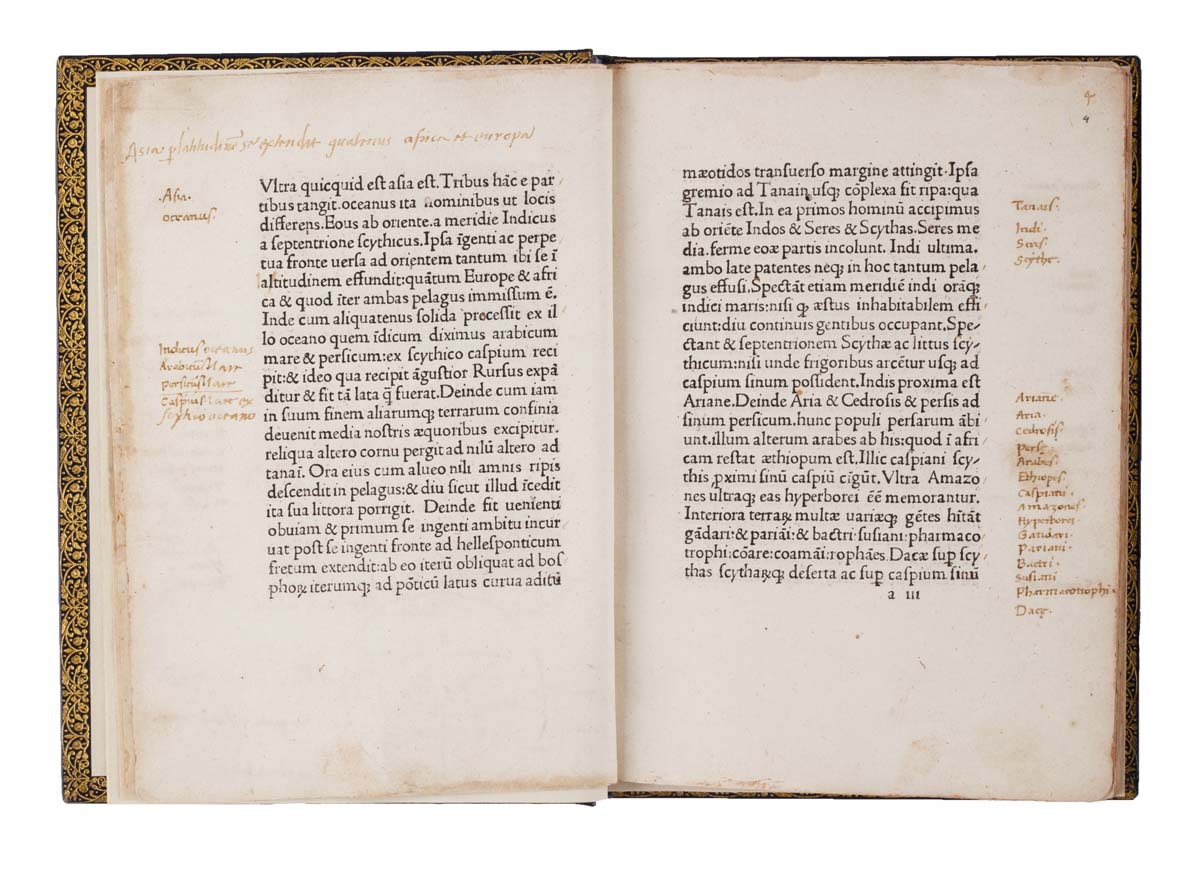 Asia platitudinē se extendit quatenus africa et europa
Asia.
oceanus.
Vltra quicquid est asia est. Tribus hāc e par
tibus tangit. oceanus ita nominibus ut locis
differens. Eous ab oriente. a meridie Indicus
a septentrione scythicus. Ipsa īgenti ac perpe
tua fronte uersa ad orientem tantum ibi se ī
altitudinem effundit: quātum Europe & afri
ca & quod īter ambas pelagus immissum ē.
Inde cum aliquatenus solida processit ex il
lo oceano quem īdicum diximus arabicum
mare & persicum: ex scythico caspium reci
pit: & ideo qua recipit āgustior Rursus expā
ditur & fit tā lata q̄ fuerat. Deinde cum iam
in suum finem aliarumq; terrarum confinia
deuenit media nostris æquoribus excipitur.
reliqua altero cornu pergit ad nilū altero ad
tanaī. Ora eius cum alueo nili amnis ripis
descendit in pelagus: & diu sicut illud īcedit
ita sua littora porrigit. Deinde fit uenienti
obuiam & primum se ingenti ambitu incur
uat post se ingenti fronte ad hellesponticum
fretum extendit: ab eo iterū obliquat ad bos
phoꝝ iterumq; ad pōticū latus curua aditū
Indicus oceanus
Arabicū Mare
Persicus Mare
Caspiū Mare ex
scythico oceano
4
4
mæotidos transuerso margine attingit. Ipsa
gremio ad Tanain usq; cōplexa fit ripa: qua
Tanais est. In ea primos hominū accipimus
ab oriēte Indos & Seres & Scythas. Seres me
dia. ferme eoæ partis incolunt. Indi ultima.
ambo late patentes neq; in hoc tantum pela
gus effusi. Spectāt etiam meridiē indi orāq;
indici maris: nisi ꝙ æstus inhabitabilem effi
ciunt: diu continuis gentibus occupant. Spe
ctant & septentrionem Scythæ ac littus scy
thicum: nisi unde frigoribus arcētur usq; ad
caspium sinum possident. Indis proxima est
Ariane. Deinde Aria & Cedrosis & persis ad
sinum persicum. hunc populi persarum ābi
unt. illum alterum arabes ab his: quod ī afri
cam restat æthiopum est. Illic caspiani scy
this ꝓximi sinū caspiū cīgūt. Vltra Amazo
nes ultraq; eas hyperborei eē memorantur.
Interiora terraꝝ multæ uariæq; gētes hītāt
gādari: & pariāi: & bactri: susiani: pharmaco
trophi: cōare: coamāi: rophāes. Dacæ sup̱ scy
thas scythaꝝq; deserta ac sup̱ caspium sinū
a iii
Tanais.
Indi.
Seres.
Scythe.
Ariane.
Aria.
Cedrosis.
Persę.
Arabes.
Ethiopes.
Caspiani.
Amazones.
Hyperborei.
Gandari.
Pariani.
Bactri.
Susiani
Pharmacotrophi.
Dacę.